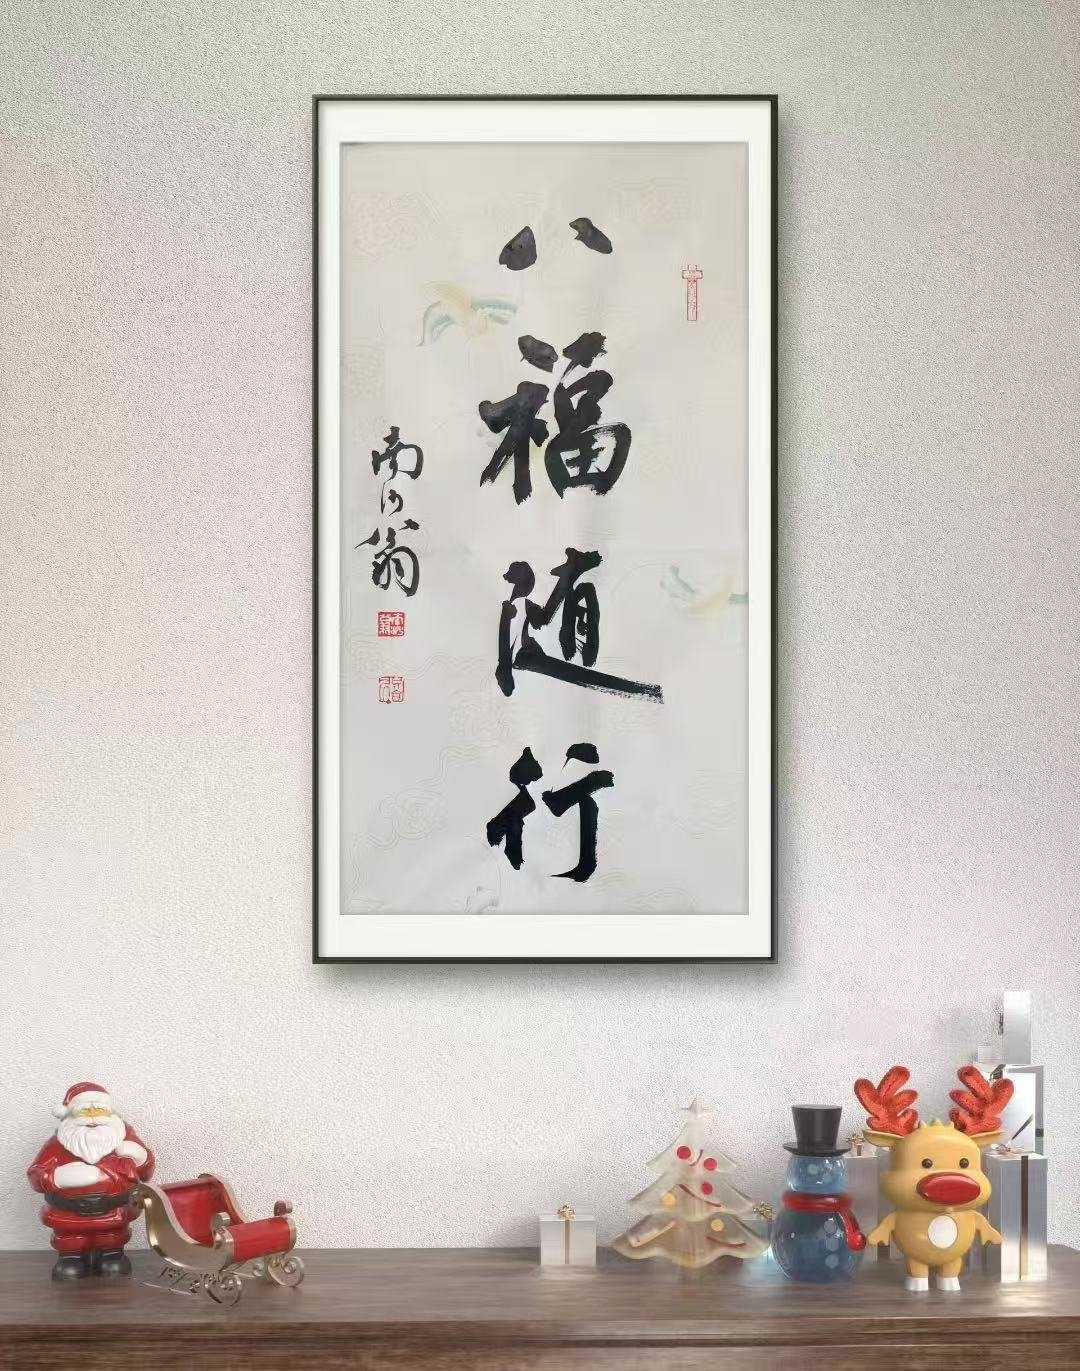 八福随行
南山翁